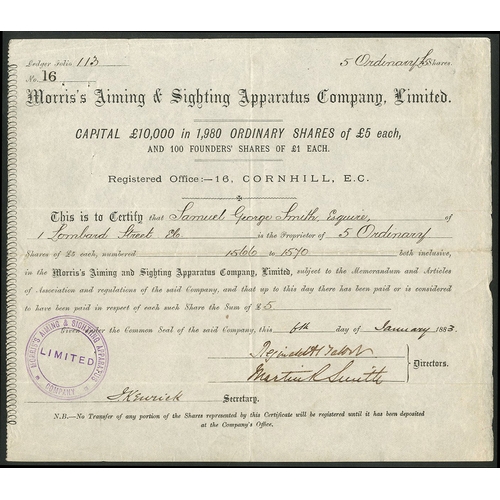 Ledger Folio 113 5 Ordinary Shares.
No. 16
Morris's Aiming & Sighting Apparatus Company, Limited.
CAPITAL £10,000 in 1,980 ORDINARY SHARES of £5 each,
AND 100 FOUNDERS' SHARES OF £1 EACH.
Registered Office:—16, CORNHILL, E.C.
This is to Certify that Samuel George Smith, Esquire, of
1 Lombard Street is the Proprietor of 5 Ordinary
Shares of £5 each, numbered 1566 to 1570 both inclusive,
in the Morris's Aiming and Sighting Apparatus Company, Limited, subject to the Memorandum and Articles
of Association and regulations of the said Company, and that up to this day there has been paid or is considered
to have been paid in respect of each such Share the Sum of £5
Given under the Common Seal of the said Company, this 6th day of January 1883.
MORRIS'S AIMING & SIGHTING APPARATUS
LIMITED
COMPANY
Directors.
Martin R Smith
J. Kenrick Secretary.
N.B.—No Transfer of any portion of the Shares represented by this Certificate will be registered until it has been deposited
at the Company's Office.